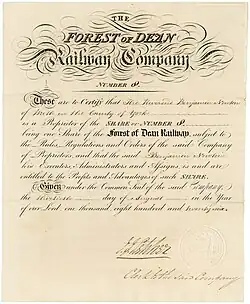 THE
FOREST OF DEAN
Railway Company
NUMBER 8
These are to Certify that The Reverend Benjamin Newton
of in the County of York
is a Proprietor of the SHARE or NUMBER 8
being one Share of the Forest of Dean Railway, subject to
the Rules, Regulations and Orders of the said Company
of Proprietors, and that the said Benjamin Newton
his Executors, Administrators and Assigns, is and are
entitled to the Profits and Advantages of such SHARE.
Given under the Common Seal of the said Company,
the day of August in the Year
of our Lord one thousand eight hundred and twenty six.
Clerk to the said Company